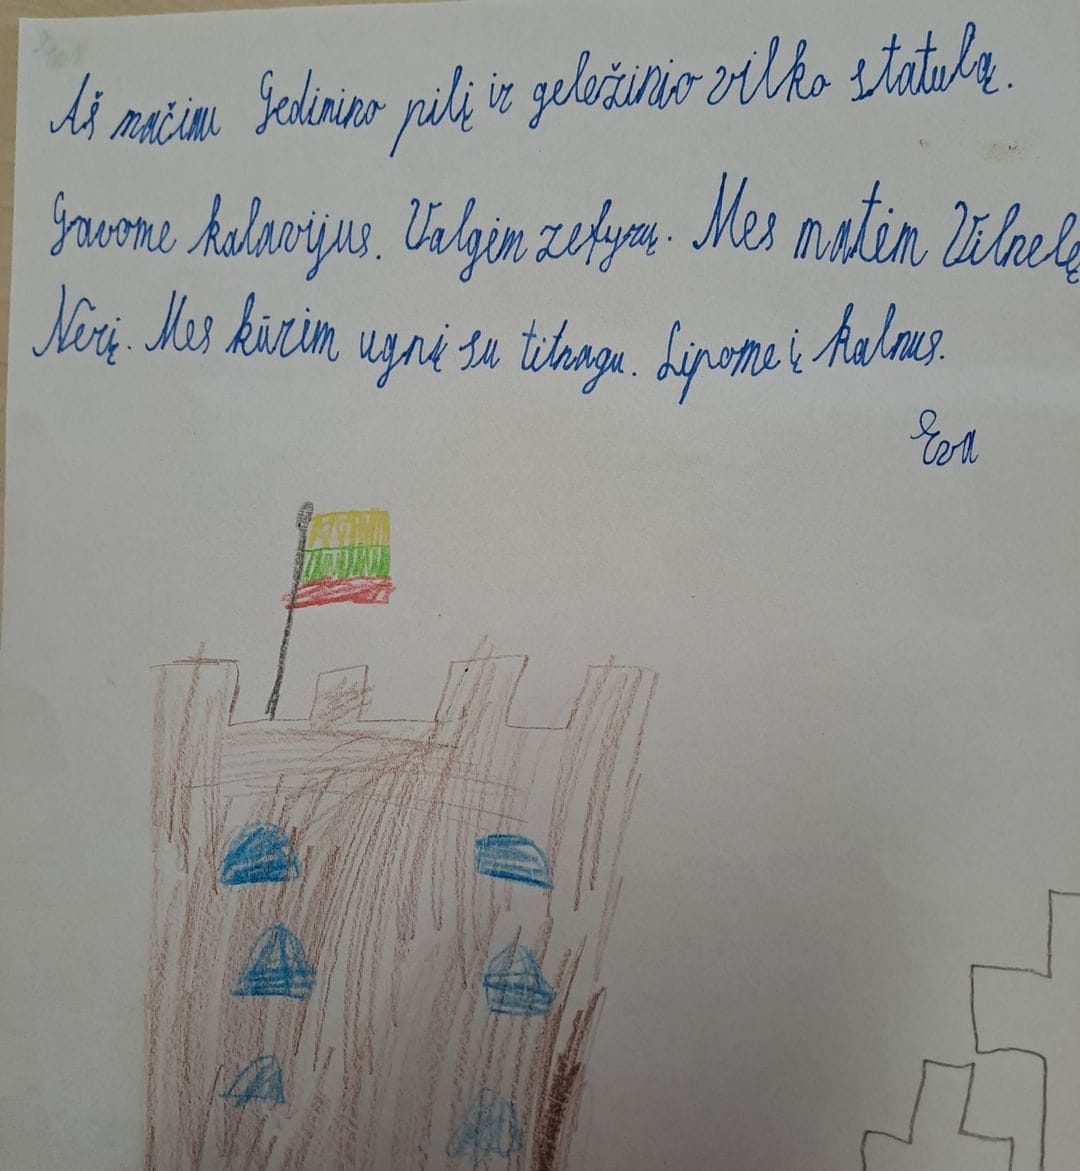 Aš mačiau Gedimino pilį ir geležinio vilko statulą.
Gavome kalavijus. Valgėm zefyrų. Mes matėm Vilnelę
Nerį. Mes kūrim ugnį su titnagu. Lipome į kalnus.
Eva